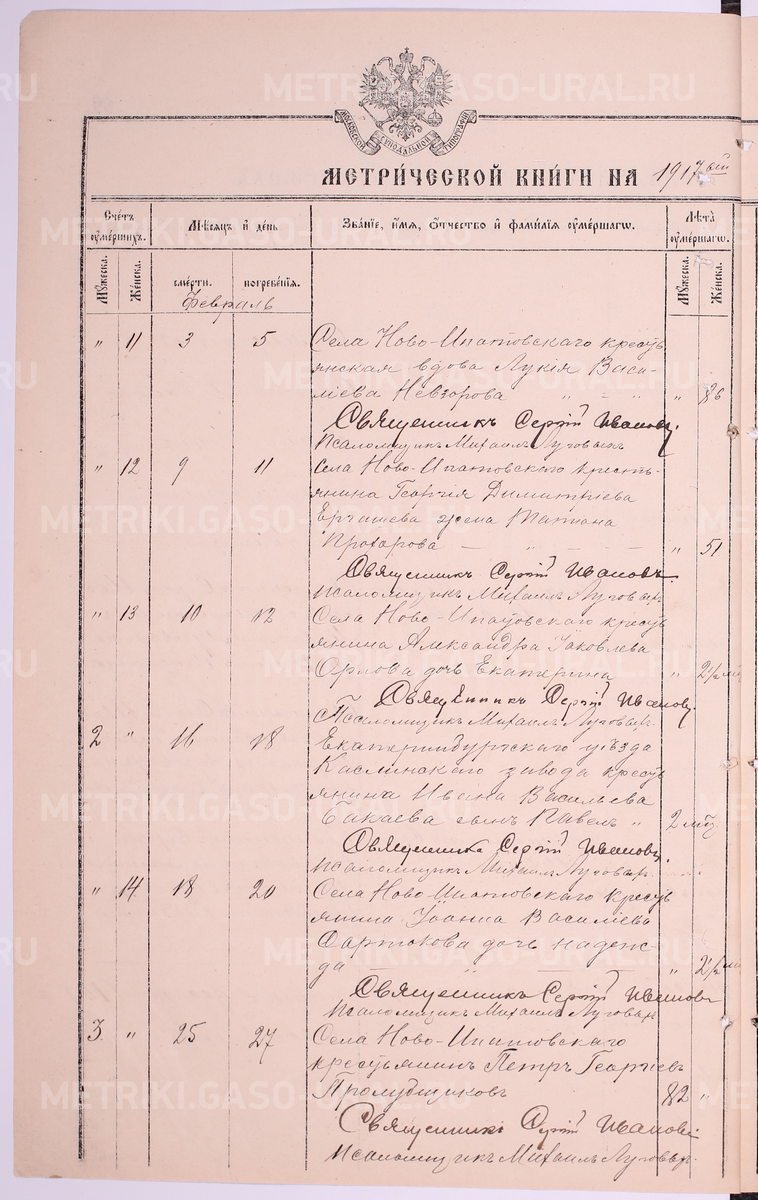 METRIKI.GASO-URAL.RU
МОСКОВСКОЙ СѴНОДАЛЬНОЙ ТИПОГРАФІИ
МЕТРИ́ЧЕСКОЙ КНИ́ГИ НА 1917ый
Сче́тъ ᲂу҆ме́ршихъ.
Мѣ́сяцъ и҆ де́нь
Зва́нїе, и҆́мя, ѻ҆́тчество и҆ фами́лїя ᲂу҆ме́ршагѡ.
Лѣ́та ᲂу҆ме́ршагѡ.
Мꙋ́жеска.
Же́нска.
сме́рти.
погребе́нїя.
Мꙋ́жеска.
Же́нска.
Февраль
" 11 3 5 Села Ново-Ипатовскаго кресть
янская вдова Лукія Васи-
ліева Невзорова " 86
Священникъ Сергій Ивановъ.
Псаломщикъ Михаилъ Луговыхъ
" 12 9 11 Села Ново-Ипатовскаго кресть-
янина Георгія Димитріева
жена Татіана
Прохорова " 51
Священникъ Сергій Ивановъ.
Псаломщикъ Михаилъ Луговыхъ
" 13 10 12 Села Ново-Ипатовскаго кресть
янина Александра Іаковлева
Орлова дочь Екатерина " 2½ мѣ
Священникъ Сергій Ивановъ.
Псаломщикъ Михаилъ Луговыхъ
2 " 16 18 Екатеринбургскаго уѣзда
Каслинскаго завода кресть
янина Ивана Васильева
Бакаева сынъ Павелъ " 2 мѣс.
Священникъ Сергій Ивановъ.
Псаломщикъ Михаилъ Луговыхъ
" 14 18 20 Села Ново-Ипатовскаго кресть
янина Іоанна Василіева
дочь Надеж-
да " 2½ мѣ
Священникъ Сергій Ивановъ
Псаломщикъ Михаилъ Луговыхъ
3 " 25 27 Села Ново-Ипатовскаго
крестьянинъ Петръ Георгіевъ
Пролубщиковъ 82 "
Священникъ Сергій Ивановъ
Псаломщикъ Михаилъ Луговыхъ